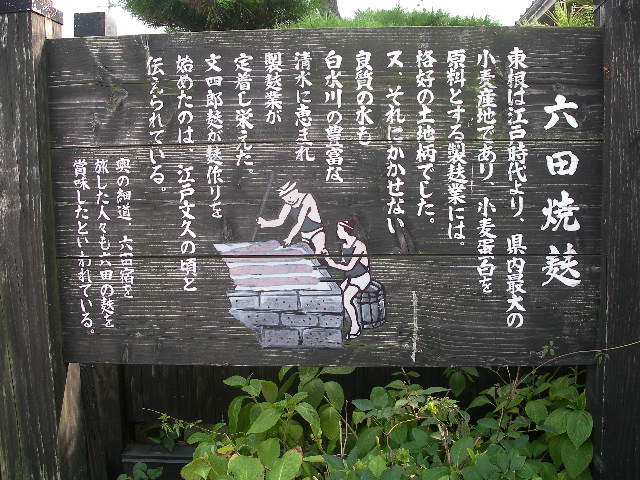 六田焼麩
東根は江戸時代より、県内最大の
小麦産地であり、小麦蛋白を
原料とする製麩業には。
格好の土地柄でした。
又、それにかかせない
良質の水も
白水川の豊富な
清水に恵まれ
製麩業が
定着し栄えた、
文四郎麩が麩作りを
始めたのは 江戸文久の頃と
伝えられている。
奥の細道、六田宿を
旅した人々も六田の麩を
賞味したといわれている。